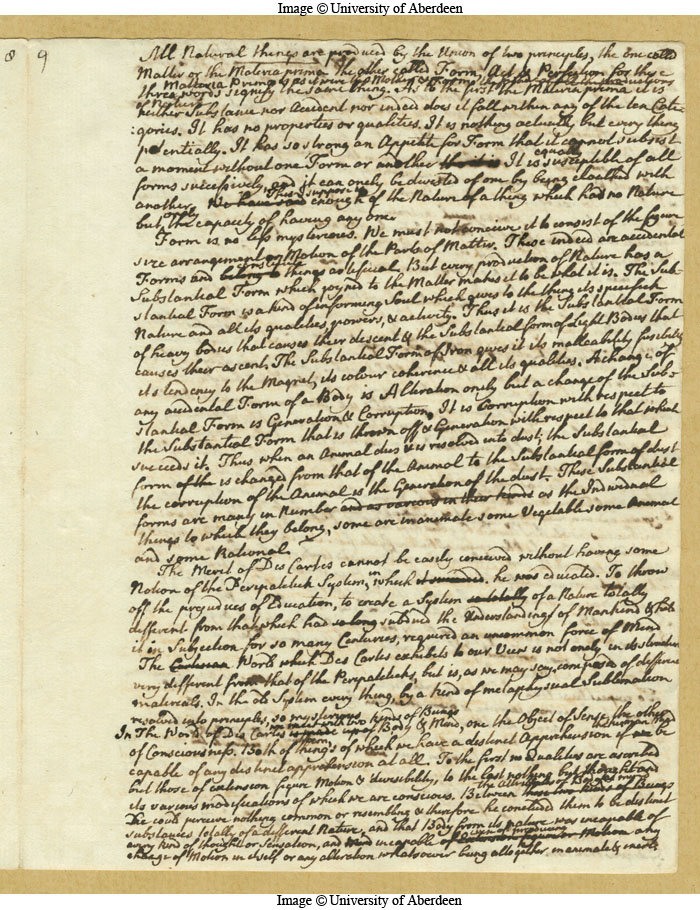 Image © University of Aberdeen
8 9
All Natural things are produced by the Union of two principles, the One called
Matter or the Materia prima the other called Form, Act & Perfection for these
Materia Prima is as it were the Mother & Form the Father of all the productions
three words signify the same thing. As to the first the Materia prima it is
of Nature
neither Substance nor Accident nor indeed does it fall within any of the ten Cate
:gories. It has no properties or qualities. It is nothing actually but every thing
potentially. It has so strong an Appetite for Form that it cannot subsist
a moment without one Form or another It is equally susceptible of all
forms successively, and it can onely be divested of one by being cloathed with
another. This I suppose is enough of the Nature of a thing which had no Nature
but onely the capacity of having any one.
Form is no less mysterious. We must not conceive it to consist of the figure
size arrangement or Motion of the Parts of Matter. These indeed are accidental
Forms and things artificial. But every production of Nature has a
Substantial Form which joyned to the Matter makes it to be what it is. The Sub-
stantial Form is a kind of informing Soul which gives to the thing its specifick
Nature and all its qualities, powers, & activity. Thus it is the Substantial Form
of heavy bodies that causes their descent & the Substantial form of Light Bodies that
causes their ascent. The Substantial Form of Iron gives it its malleability fusibility
its tendency to the Magnet, its colour coherence & all its qualities. A change of
any accidental Form of a Body is Alteration onely but a change of the Subs-
stantial Form is Generation & Corruption. It is Corruption with respect to
the Substantial Form that is thrown off & Generation with respect to that which
succeeds it. Thus when an Animal dies & is resolved into dust; the Substantial
form of the is changed from that of the Animal to the Substantial form of dust
the corruption of the Animal is the Generation of the dust. These Substantial
forms are many in Number and as various in their kinds as the Individual
things to which they belong, some are inanimate some Vegetable some Animal
and some Rational.
The Merit of Des Cartes cannot be easily conceived without having some
Notion of the Peripatetick System, in which he was educated. To throw
off the prejudices of Education, to create a System of a Nature totally
different from that which had so long subdued the Understandings of Mankind & held
it in Subjection for so many Centuries, required an uncommon force of Mind
The Cartesian World which Des Cartes exhibits to our View is not onely in its structure
very different from that of the Peripateticks, but is, as we may say, composed of different
materials. In the old System every thing, by a kind of metaphysical Sublimation
resolved into principles, so mysterious
we meet with two kinds of Beings
In The World of Des Cartes is made up of Body & Mind, one the Object of Sense the other
of Consciousness. Both of things of which we have a distinct Apprehension if we be
capable of any distinct apprehension at all. To the first no qualities are ascribed
but those of extension figure Motion & divisibility, to the last nothing but thought and
its various modifications of which we are conscious. Between these two kinds of Beings
He could perceive nothing common or resembling & therefore he concluded them to be distinct
substances totally of a different Nature, and that Body from its nature was incapable of
every kind of thought or Sensation, and Mind incapable of Motion any
change of Motion in itself or any alteration whatsoever being altogether inanimate & inert.
Image © University of Aberdeen